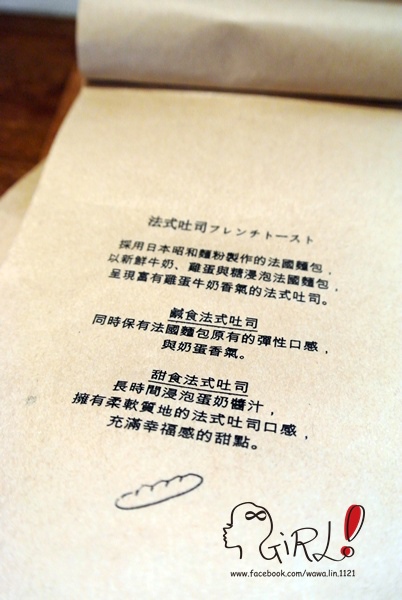 法式吐司フレンチトースト
採用日本昭和麵粉製作的法國麵包，
以新鮮牛奶、雞蛋與糖浸泡法國麵包，
呈現富有雞蛋牛奶香氣的法式吐司。
鹹食法式吐司
同時保有法國麵包原有的彈性口感，
與奶蛋香氣。
甜食法式吐司
長時間浸泡蛋奶醬汁，
擁有柔軟質地的法式吐司口感，
充滿幸福感的甜點。
GiRL!
www.facebook.com/wawa.lin.1121